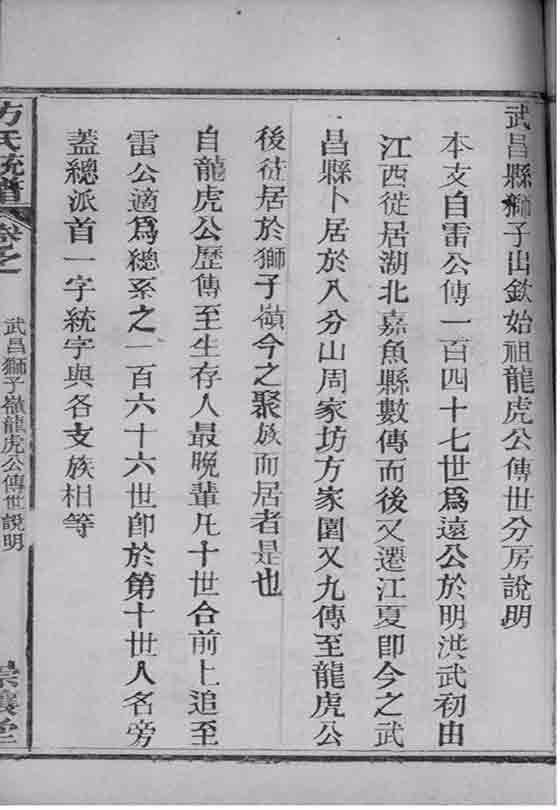 武昌縣獅子山欽始祖龍虎公傳世分房說明
本支自雷公傳一百四十七世爲遠公於明洪武初由
江西徙居湖北嘉魚縣數傳而後又遷江夏卽今之武
昌縣卜居於八分山周家坊方家園又九傳至龍虎公
後徙居於獅子嶺今之聚族而居者是也
自龍虎公歷傳至生存人最晚輩凡十世合前上追至
雷公適爲總系之一百六十六世卽於第十世人名旁
蓋總派首一字統字與各支族相等
方氏統譜
卷之
武昌獅子嶺龍虎公傳世說明